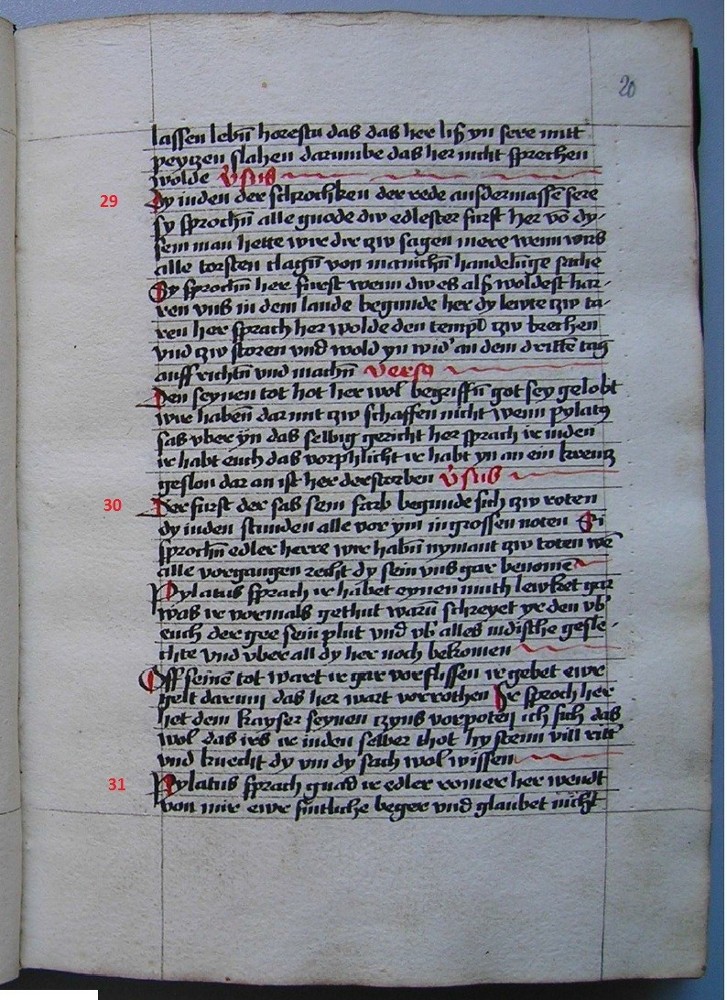 20
lassen lebn̄ horestu das das her liß yn sere mitt
peytzen slahen darumbe das her nicht sprechen
wolde v̄sus
29 Dy iuden der schrochken der rede ausdermasse͞ sere
sy sprochn̄ alle gnode diw edlester furst her vo͞ dy-
sem man hette wir dir tzw sagen mere wenn wirs
alle torsten clagn̄ von manichn̄ handelu͞ge sache
Sy sprochn̄ her furst wenn dw es alß woldest har-
ren vns in dem lande begunde her dy lewte tzw ta-
ren her sprach her wolde den templ tzw brechen
vnd tzw storen vnd wold yn wid' an dem dritte͞ tag
auff richtn̄ vnd machn̄ versꝯ
Den seynen tot hot her wol begriffn̄ got sey gelobt
wir haben̄ dar mit tzw schaffen nicht wenn pylatꝯ
sas vber ÿn das selbig gericht her sprach ir iuden
ir habt euch das vorphlicht ir habt yn an ein krewtz
geslon dar an ist her derstorben v̄sus
30 Der furst der sas sein farb begunde sich tzw roten
dy iuden stunden alle vor ym in grossen noten Si
sprochn̄ edler herre wir habn̄ nymant tzw toten we͞
alle vorgangen recht dy sein vns gar benome͞
Pylatus sprach ir habet eynen mith lewket gar
was ir vormals gethut waru͞ schreyet yr den vb'
euch der gee sein plut vnd vb' alles iudische gesle-
chte vnd vber all dy her noch bekomen
Off seine͞ tot wart ir gar vorflissen ir gebet ewr
gelt darum das her wart vorrothen Ir sproch her
het dem kayser seynen tzyns vorpoten ich sich das
wol das irs ir iuden selber thot hy stenn vill ritt'
vnd knecht dy vm dy sach wol wissen
31 Pylatus sprach gnad ir edler romer her wendt
von mir ewr sintliche beger vnd glaubet nicht